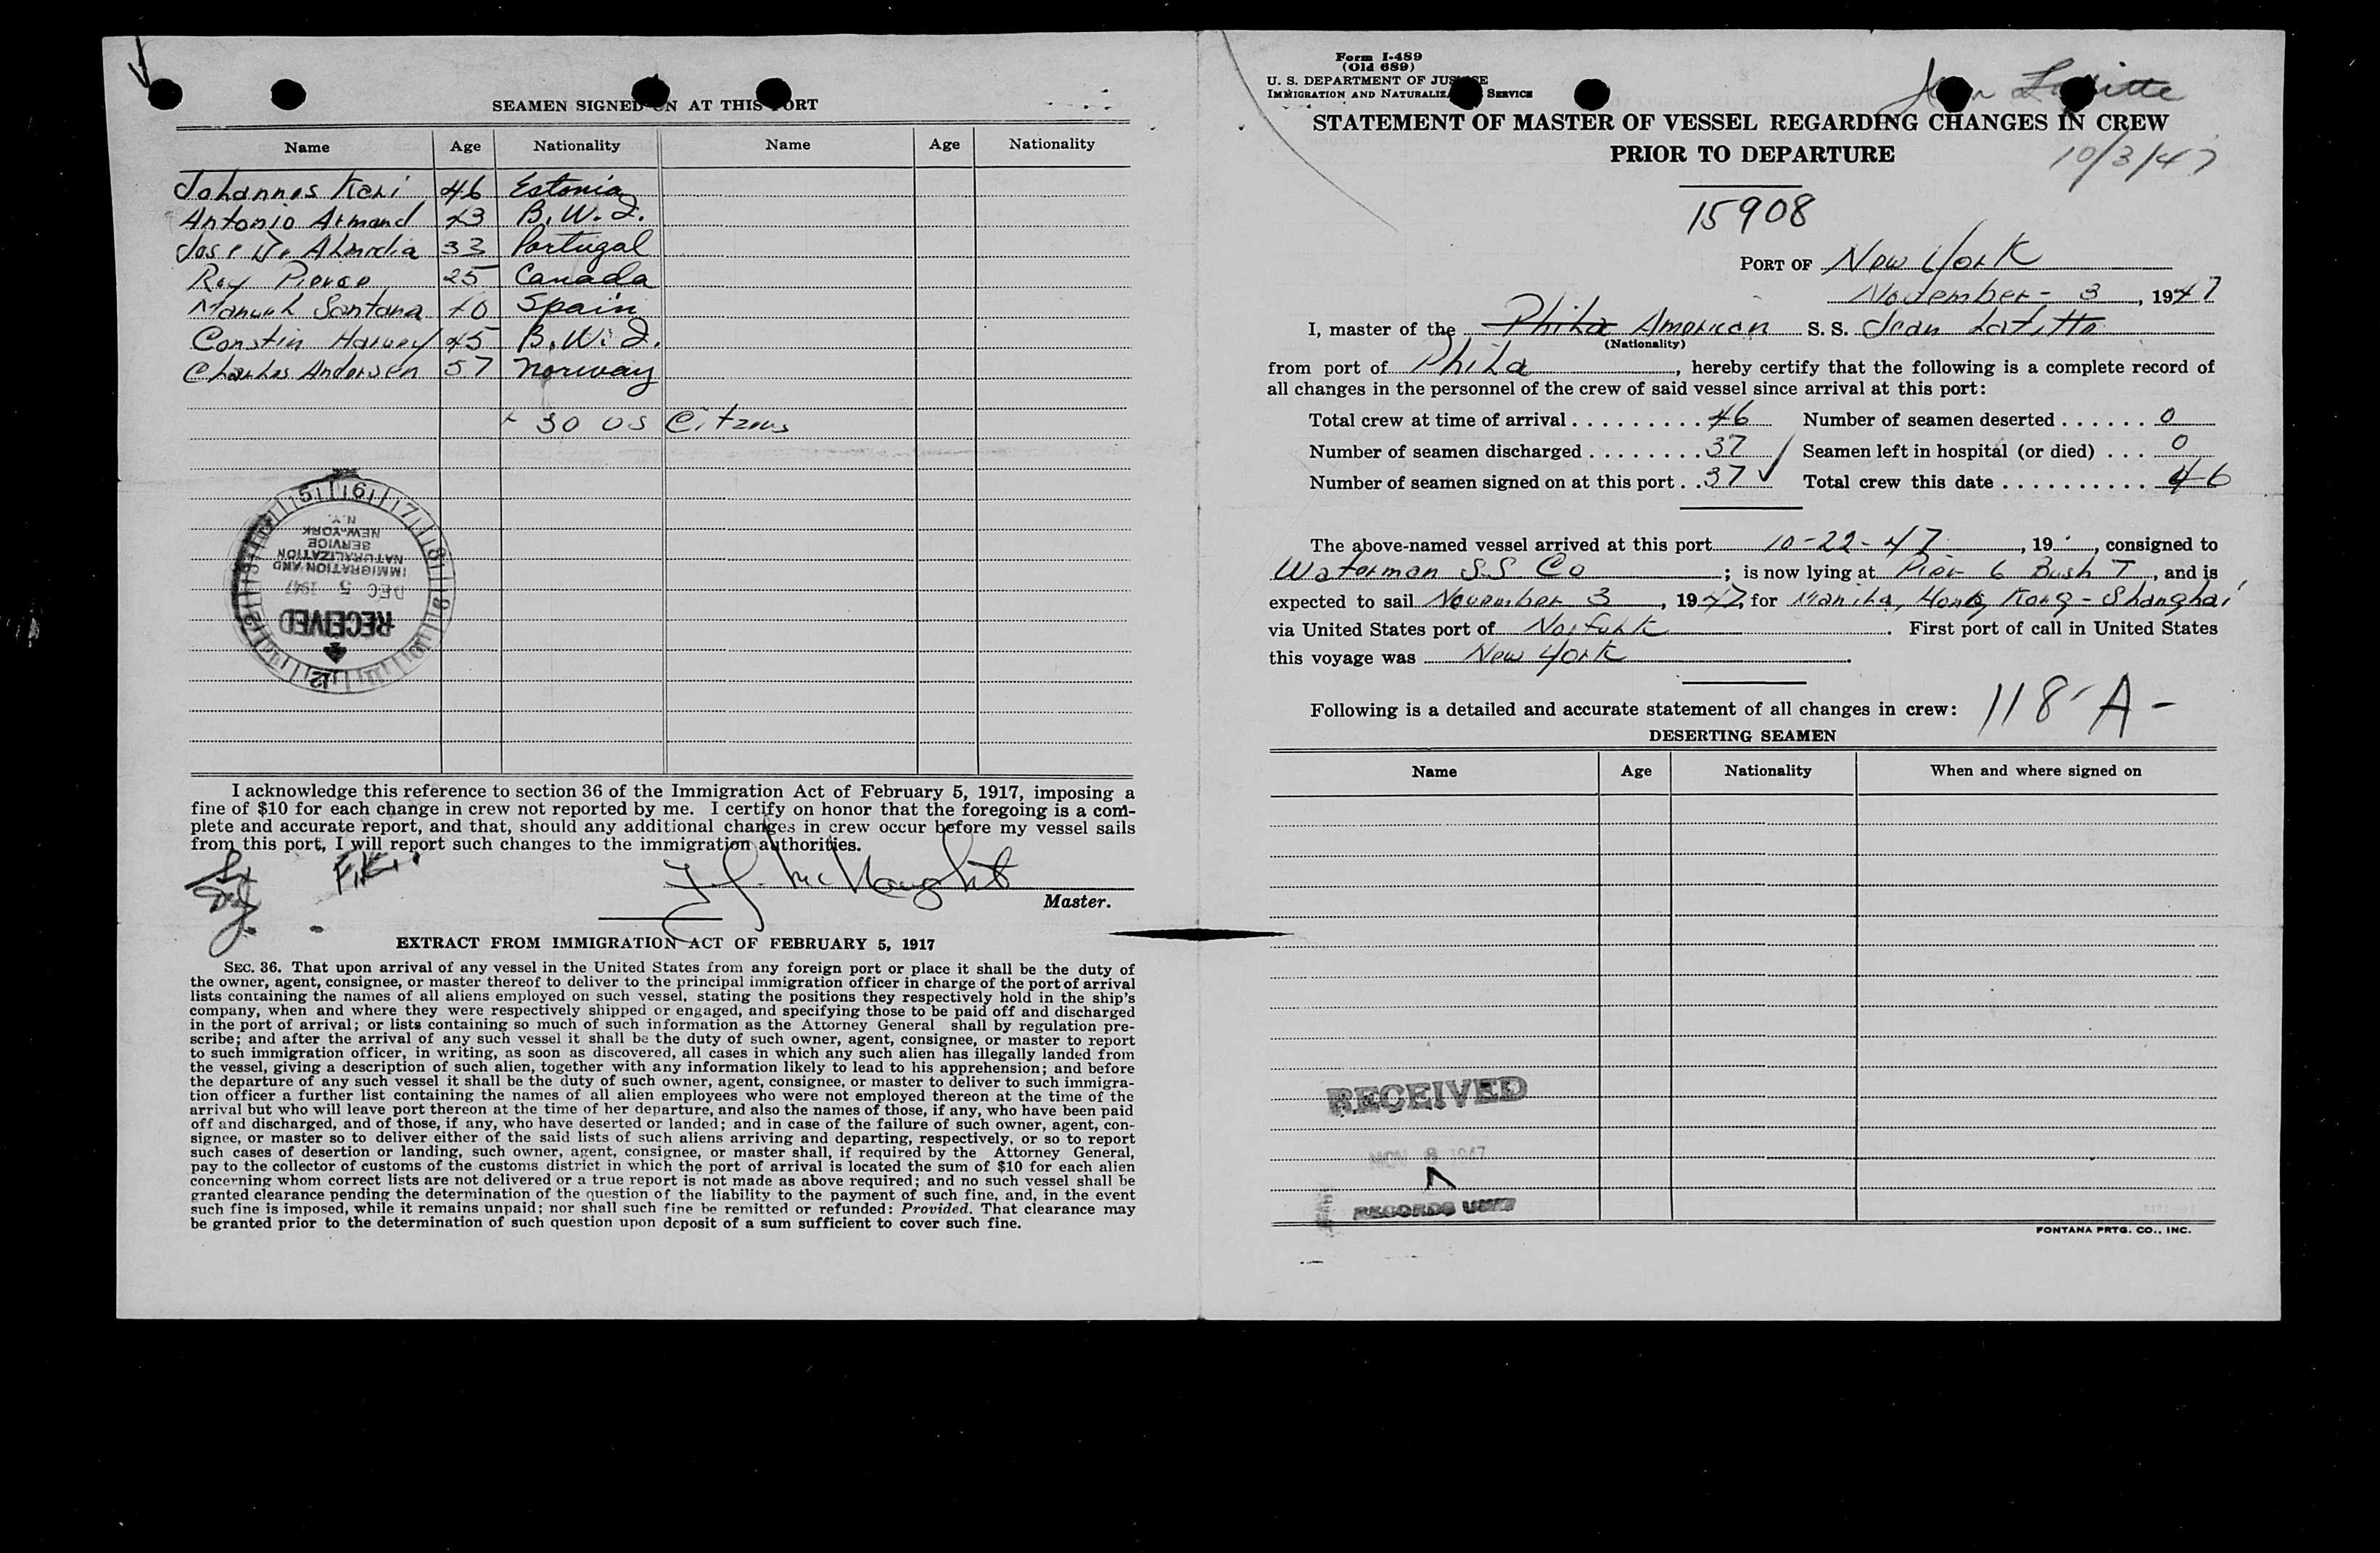 SEAMEN SIGNED ON AT THIS PORT
Name Age Nationality Name Age Nationality
Johannes Kari 46 Estonia
Antonio Armand 43 B.W.I.
Jose D. Almedia 33 Portugal
Roy Pierce 25 Canada
Manuel Santana 40 Spain
Constin Harvey 45 B.W.I.
Charles Andersen 57 Norway
+ 30 US Citzens
N.Y.
NEW YORK
SERVICE
NATURALIZATION
IMMIGRATION AND
DEC 5 1947
RECEIVED
I acknowledge this reference to section 36 of the Immigration Act of February 5, 1917, imposing a
fine of $10 for each change in crew not reported by me. I certify on honor that the foregoing is a com-
plete and accurate report, and that, should any additional changes in crew occur before my vessel sails
from this port, I will report such changes to the immigration authorities.
McNaught
Master.
EXTRACT FROM IMMIGRATION ACT OF FEBRUARY 5, 1917
SEC. 36. That upon arrival of any vessel in the United States from any foreign port or place it shall be the duty of
the owner, agent, consignee, or master thereof to deliver to the principal immigration officer in charge of the port of arrival
lists containing the names of all aliens employed on such vessel, stating the positions they respectively hold in the ship's
company, when and where they were respectively shipped or engaged, and specifying those to be paid off and discharged
in the port of arrival; or lists containing so much of such information as the Attorney General shall by regulation pre-
scribe; and after the arrival of any such vessel it shall be the duty of such owner, agent, consignee, or master to report
to such immigration officer, in writing, as soon as discovered, all cases in which any such alien has illegally landed from
the vessel, giving a description of such alien, together with any information likely to lead to his apprehension; and before
the departure of any such vessel it shall be the duty of such owner, agent, consignee, or master to deliver to such immigra-
tion officer a further list containing the names of all alien employees who were not employed thereon at the time of the
arrival but who will leave port thereon at the time of her departure, and also the names of those, if any, who have been paid
off and discharged, and of those, if any, who have deserted or landed; and in case of the failure of such owner, agent, con-
signee, or master so to deliver either of the said lists of such aliens arriving and departing, respectively, or so to report
such cases of desertion or landing, such owner, agent, consignee, or master shall, if required by the Attorney General,
pay to the collector of customs of the customs district in which the port of arrival is located the sum of $10 for each alien
concerning whom correct lists are not delivered or a true report is not made as above required; and no such vessel shall be
granted clearance pending the determination of the question of the liability to the payment of such fine, and, in the event
such fine is imposed, while it remains unpaid; nor shall such fine be remitted or refunded: Provided, That clearance may
be granted prior to the determination of such question upon deposit of a sum sufficient to cover such fine.
Form I-489
(Old 689)
U. S. DEPARTMENT OF JUSTICE
IMMIGRATION AND NATURALIZATION SERVICE
Jean Lafitte
STATEMENT OF MASTER OF VESSEL REGARDING CHANGES IN CREW
PRIOR TO DEPARTURE
10/3/47
15908
PORT OF New York
November - 3, 1947
I, master of the Phila American S. S. Jean Lafitte
(Nationality)
from port of Phila, hereby certify that the following is a complete record of
all changes in the personnel of the crew of said vessel since arrival at this port:
Total crew at time of arrival 46 Number of seamen deserted 0
Number of seamen discharged 37 Seamen left in hospital (or died) 0
Number of seamen signed on at this port 37 ✓ Total crew this date 46
The above-named vessel arrived at this port 10-22-47, 19 , consigned to
Waterman S.S. Co; is now lying at Pier 6 Bush T, and is
expected to sail November 3, 1947, for Manila, Hong Kong - Shanghai
via United States port of Norfolk. First port of call in United States
this voyage was New York.
Following is a detailed and accurate statement of all changes in crew: 118-A-
DESERTING SEAMEN
Name Age Nationality When and where signed on
RECEIVED
NOV 8 1947
RECORDS UNIT
FONTANA PRTG. CO., INC.